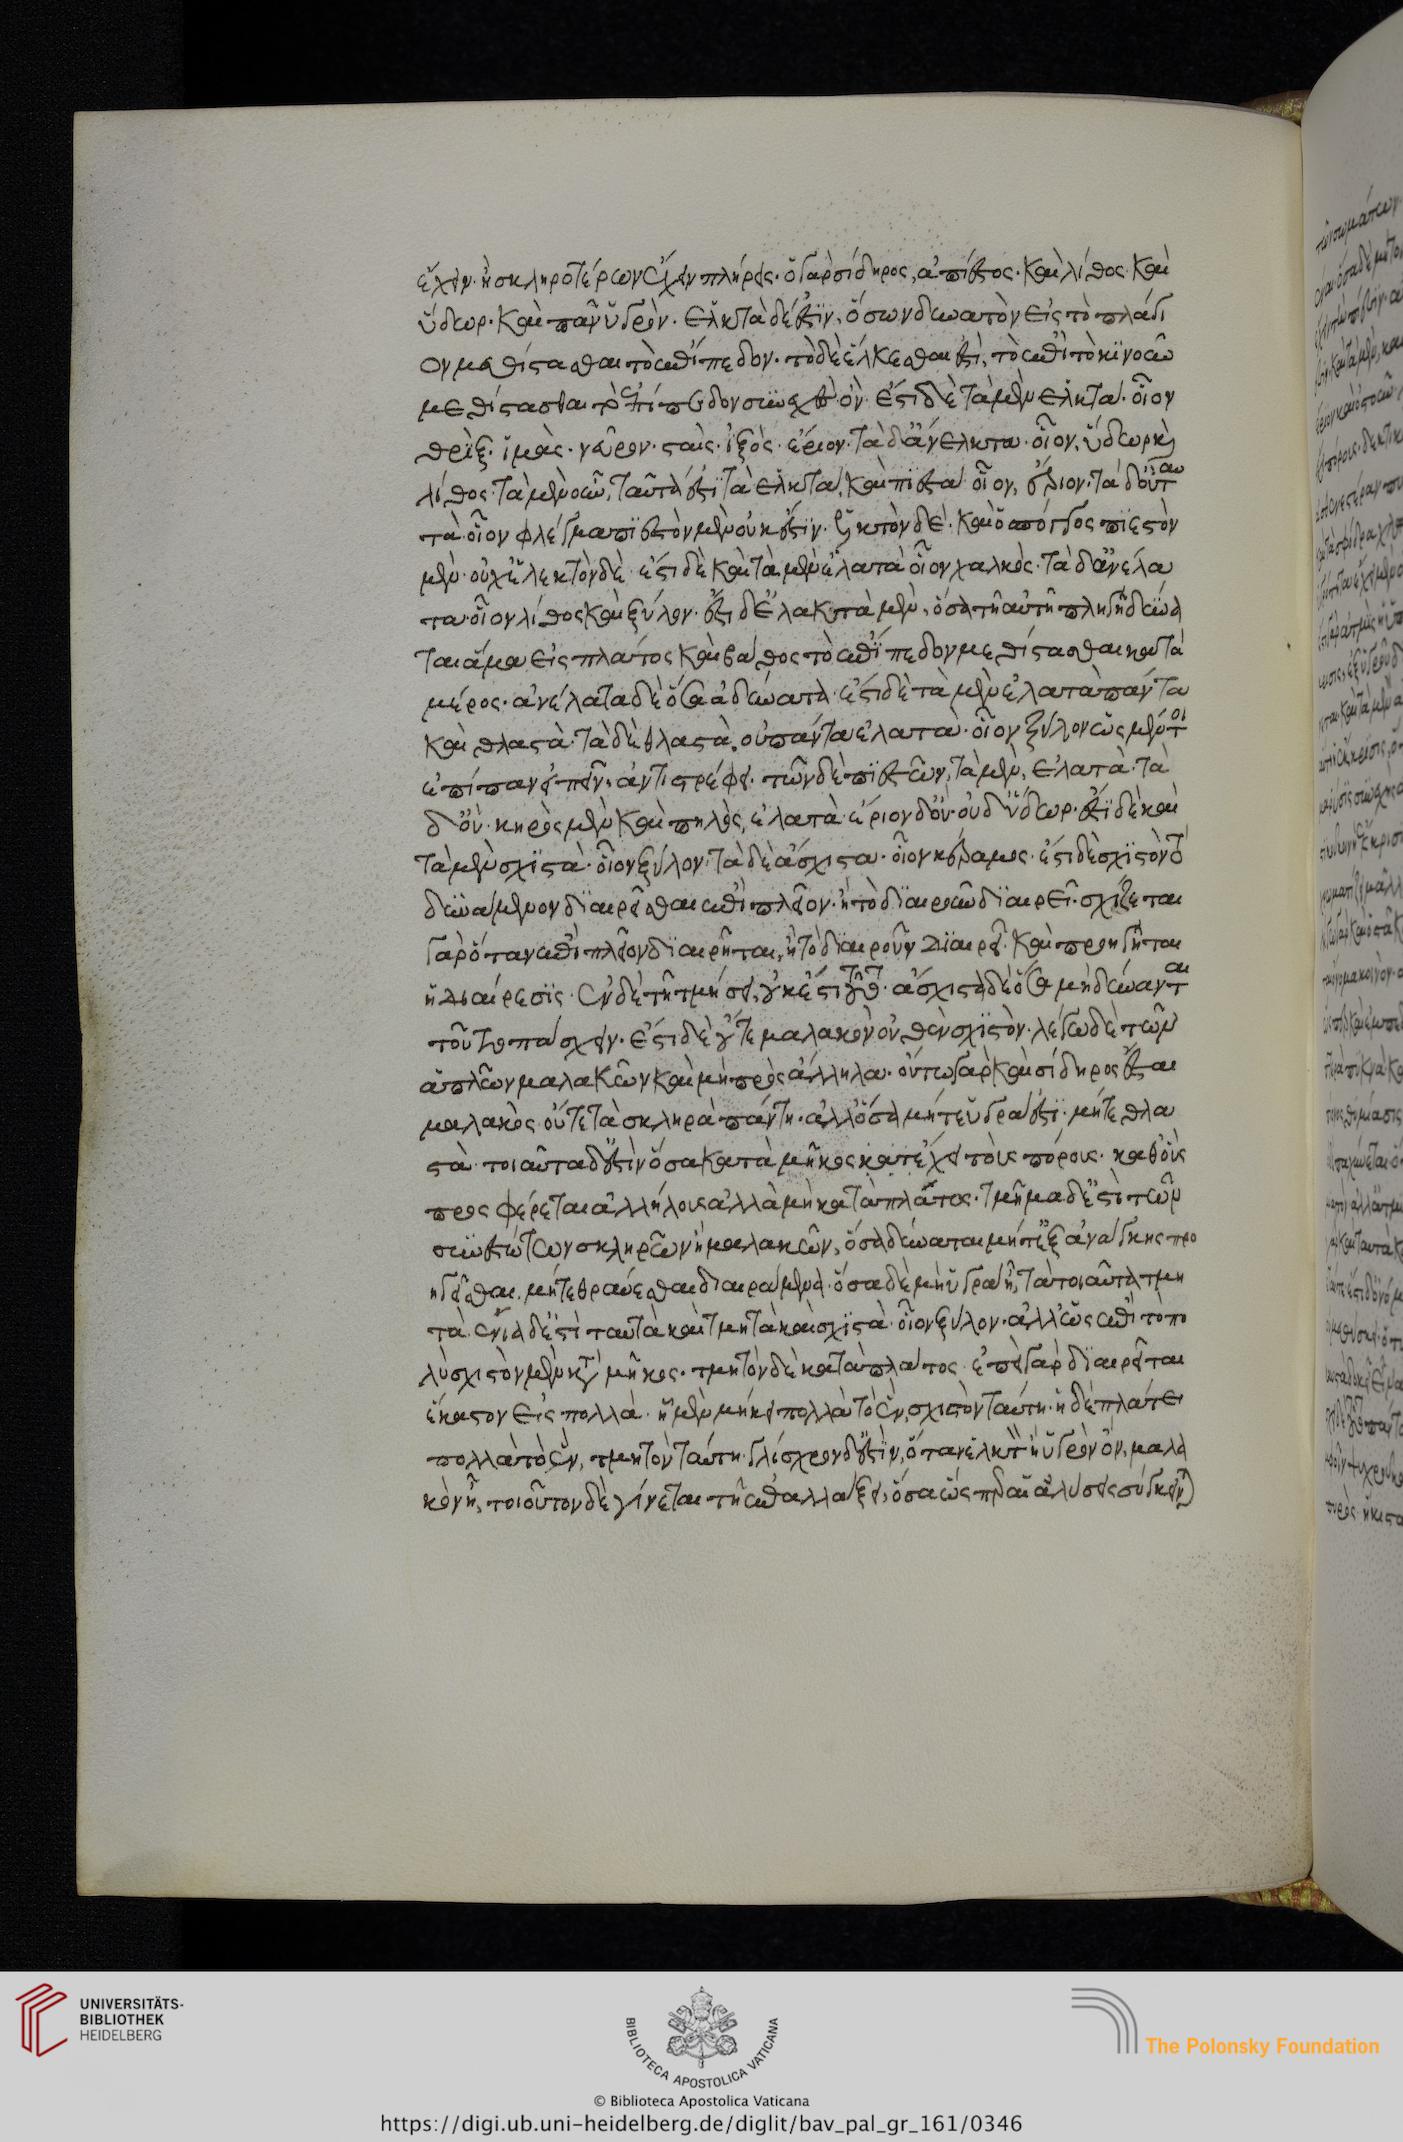 ἔχειν ἢ σκληροτέρων εἶχεν πλήρεις· ὁ γὰρ σίδηρος, ἀπίεστος· καὶ λίθος καὶ
ὕδωρ· καὶ πᾶν ὑγρόν. ἑλκτὰ δέ ἐστιν, ὅσων δυνατὸν εἰς τὸ πλάγι
ον μεθίστασθαι τὸ ἐπίπεδον· τὸ δὲ ἕλκεσθαι ἐστὶ, τὸ ἐπὶ τὸ κινοῦν
μεθίστασθαι τὸ ἐπίπεδον συνεχὲς ὄν. ἔστι δὲ τὰ μὲν ἑλκτά· οἷον
θρὶξ· ἱμὰς· νεῦρον· σταῖς· ἰξὸς· ἔριον· τὰ δ' ἄνελκτα· οἷον, ὕδωρ καὶ
λίθος· τὰ μὲν οὖν, ταῦτά ἐστι τὰ ἑλκτὰ, καὶ πιεστὰ οἷον, ἔριον· τὰ δ' οὐ ταυ
τὰ· οἷον φλέγμα πιεστὸν μὲν οὐκ ἔστιν· ἑλκτὸν δέ· καὶ ὁ σπόγγος πιεστὸν
μὲν· οὐχ ἑλεκτὸν δὲ· ἔστι δὲ καὶ τὰ μὲν ἐλατὰ οἷον χαλκὸς· τὰ δ' ἀνέλα
τα· οἷον λίθος καὶ ξύλον· ἔστι δ' ἐλακτὰ μὲν, ὅσα τῇ αὐτῇ πληγῇ δύνα
ται ἅμα εἰς πλάτος καὶ βάθος τὸ ἐπίπεδον μεθίστασθαι κατὰ
μέρος· ἀνέλατα δὲ ὅσα ἀδύνατα· ἔστι δὲ τὰ μὲν ἐλατὰ πάντα
καὶ θλαστὰ· τὰ δὲ θλαστὰ, οὐ πάντα ἐλατὰ· οἷον ξύλον ὡς μέντοι
ἐπίπαν εἰπεῖν, ἀντιστρέφει· τῶν δὲ πιεστῶν, τὰ μὲν, ἐλατὰ· τὰ
δ' οὔ· κηρὸς μὲν καὶ πηλὸς, ἐλατὰ· ἔριον δ' οὔ· οὐδ' ὕδωρ· ἔστι δὲ καὶ
τὰ μὲν σχιστὰ· οἷον ξύλον· τὰ δὲ ἄσχιστα· οἷον κέραμος· ἔστι δὲ σχιστὸν τὸ
δυνάμενον διαιρεῖσθαι ἐπὶ πλεῖον· ἢ τὸ διαιροῦν διαιρεῖ· σχίζεται
γὰρ ὅταν ἐπὶ πλεῖον διαιρῆται, ἢ τὸ διαιροῦν διαιρεῖ· καὶ προηγῆται
ἡ διαίρεσις· ἐν δὲ τῇ τμήσει, οὐκ ἔστι τοῦτο· ἄσχιστα δὲ ὅσα μὴ δύνανται
τοῦτο πάσχειν· ἔστι δὲ οὔτε μαλακὸν οὐθὲν σχιστὸν· λέγω δὲ τῶν
ἁπλῶν μαλακῶν καὶ μὴ πρὸς ἄλληλα· οὕτω γὰρ καὶ σίδηρος ἔσται
μαλακὸς· οὔτε τὰ σκληρὰ πάντη· ἀλλ' ὅσα μήτε ὑγρά ἐστι· μήτε θλα
στὰ· τοιαῦτα δ' ἐστὶν ὅσα κατὰ μῆκος κατέχει τοὺς πόρους· καθ' οὓς
προσφέρεται ἀλλήλοις ἀλλὰ μὴ κατὰ πλάτος· τμῆμα δ' ἐστὶ τῶν
συνεστώτων σκληρῶν ἢ μαλακῶν, ὅσα δύναται μήτε ἐξ ἀνάγκης προ
ηγεῖσθαι μήτε θραύεσθαι διαιρούμενα· ὅσα δὲ μὴ ὑγρὰ ᾖ, τὰ τοιαῦτα τμη
τὰ· ἔνια δ' ἐστὶ ταυτὰ καὶ τμητὰ καὶ σχιστὰ· οἷον ξύλον· ἀλλ' ὡς ἐπὶ τὸ πο
λὺ σχιστὸν μὲν κατὰ μῆκος· τμητὸν δὲ κατὰ πλάτος· ἐπεὶ γὰρ διαιρεῖται
ἕκαστον εἰς πολλὰ· ᾗ μὲν μήκει πολλὰ τὸ ἕν, σχιστὸν ταύτῃ· ᾗ δὲ πλάτει
πολλὰ τὸ ἕν, τμητὸν ταύτῃ· γλίσχρον δ' ἐστὶν, ὅταν ἑλκτὸν ᾖ ὑγρὸν ὂν, μαλα
κὸν ᾖ, τοιοῦτον δὲ γίνεται τῇ ἐπαλλάξει, ὅσα ὥσπερ αἱ ἁλύσεις σύγκειν)
UNIVERSITÄTS-
BIBLIOTHEK
HEIDELBERG
BIBLIOTECA APOSTOLICA VATICANA
© Biblioteca Apostolica Vaticana
The Polonsky Foundation
https://digi.ub.uni-heidelberg.de/diglit/bav_pal_gr_161/0346